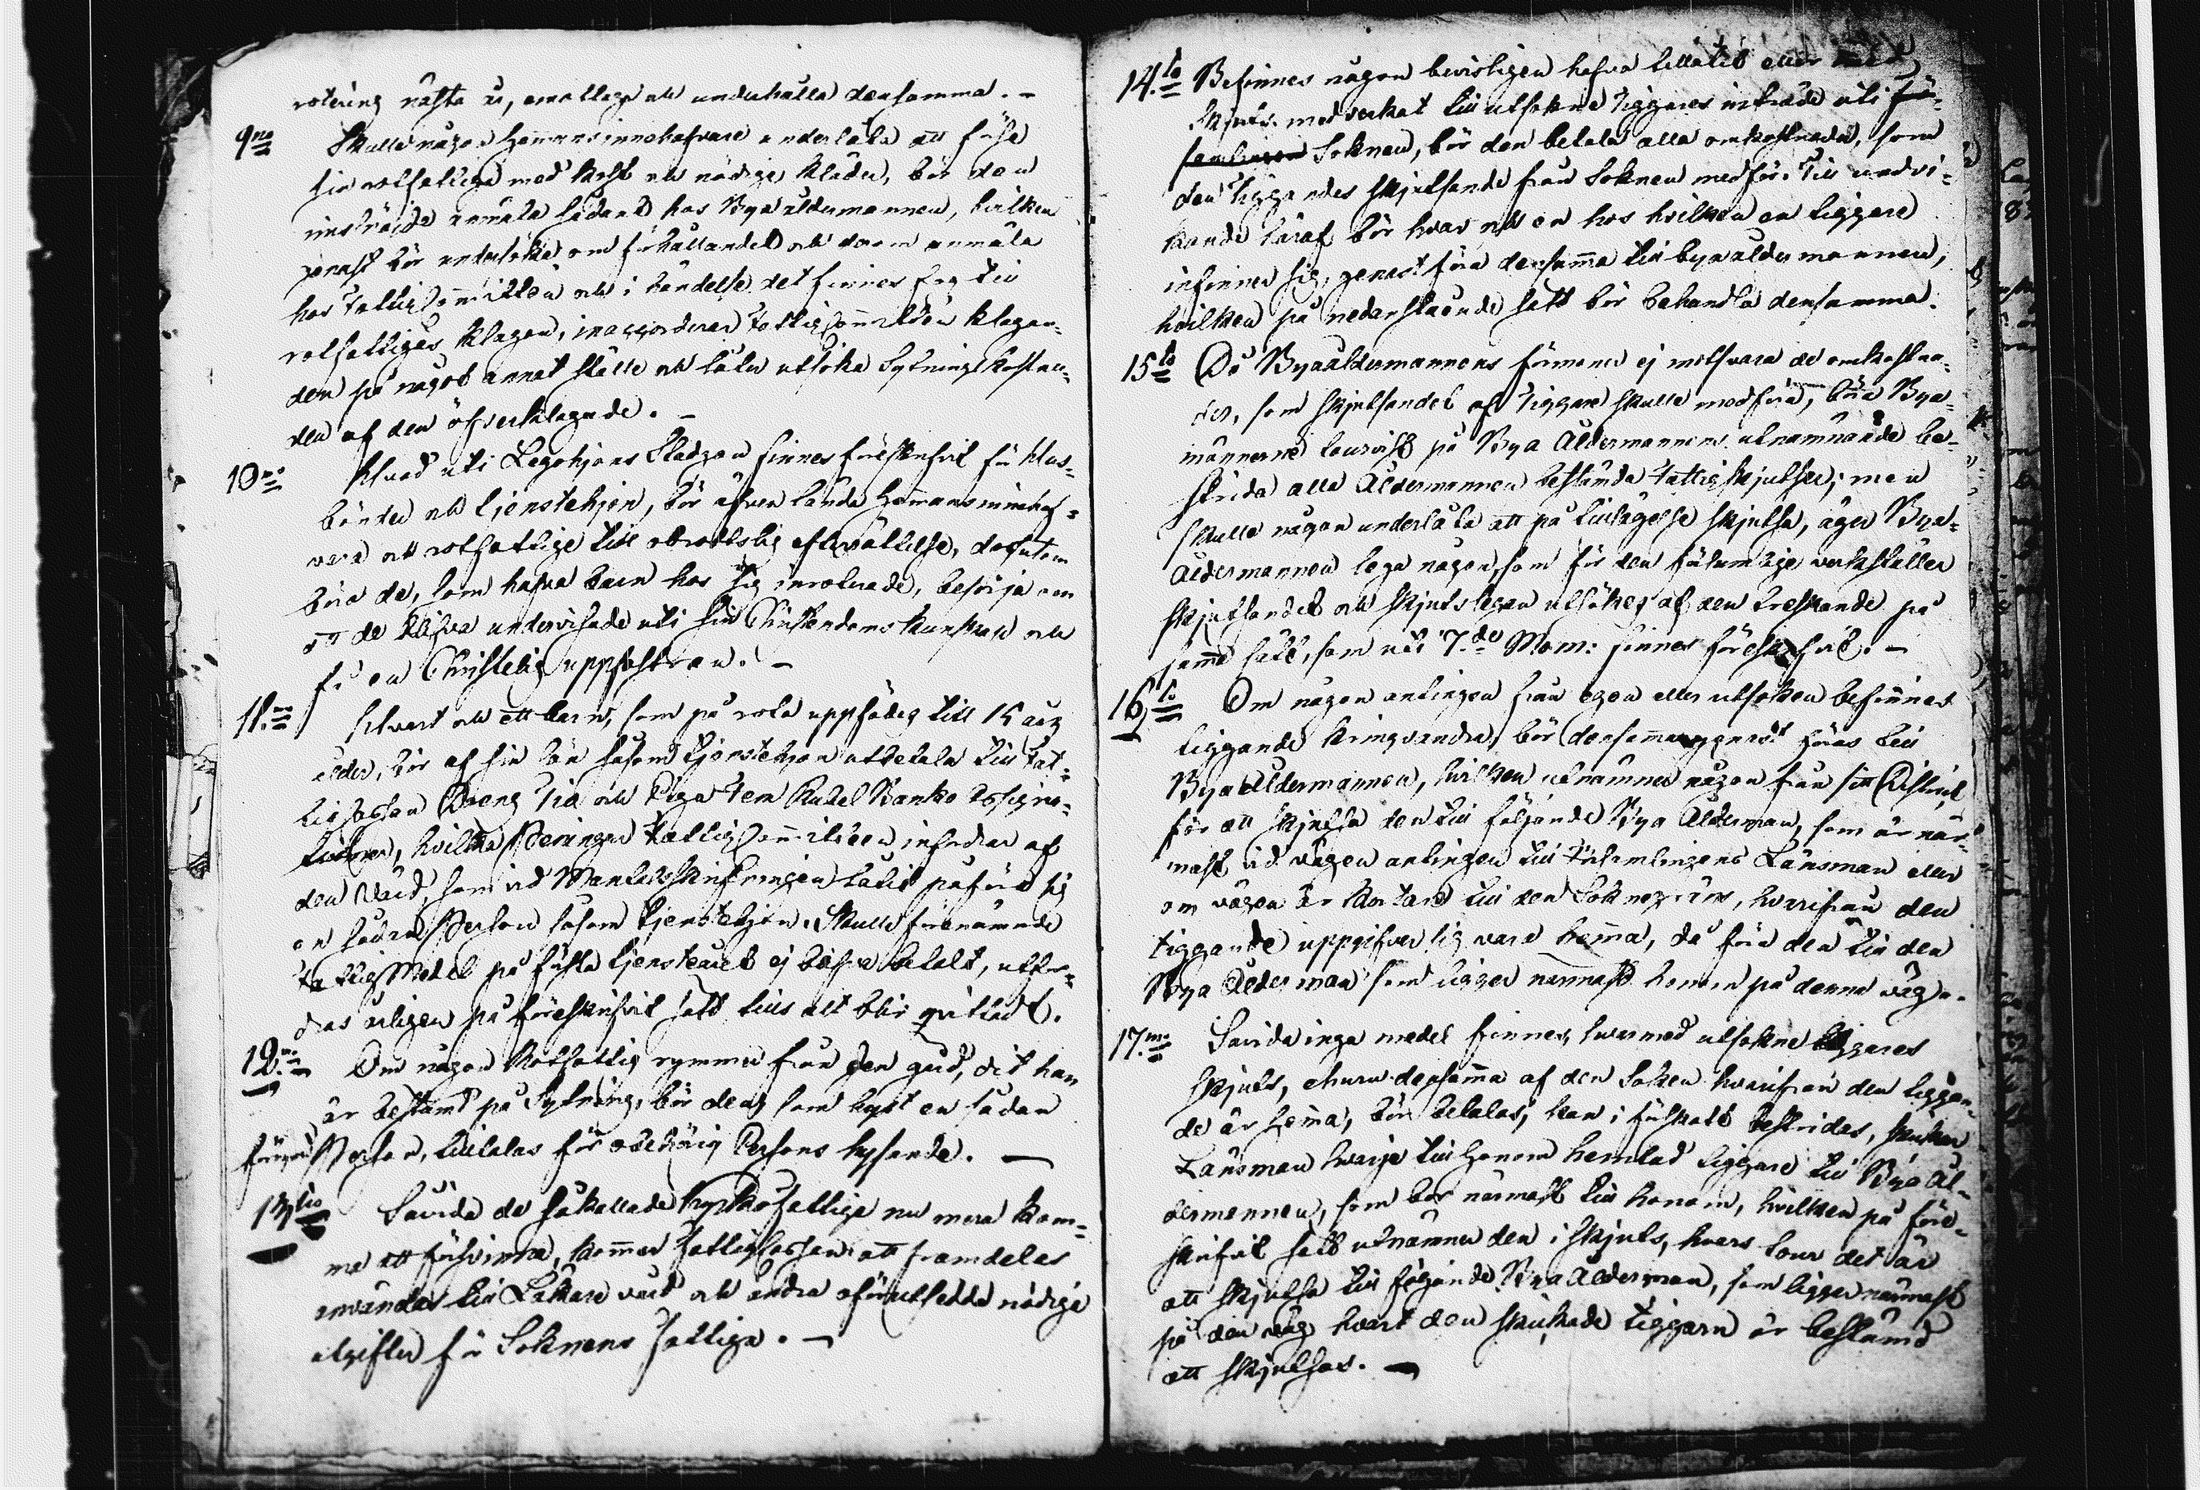 rotering nästa år, emottaga och underhålla densamma. –
9no Skulle någon Hemmansinnehafvare underlåta att förse
sin rotfattiga med kost och nödiga kläder, bör den
inhöride anmäla sådant hos Bya åldermannen, hvilken
genast bör undersöka om förhållandet och derom anmäla
hos Fattig Committén och i händelse det finnes fog till
rotfattiges klagan, inaccorderar Fattig Committén klagan-
den på något annat ställe och låter utsöka Sytningskostna-
den af den öfverklagade. –
10mo Hvad uti Legohjons Stadgan finnes föreskrifvit för Hus-
bönder och tjenstehjon, bör äfven lända Hemmansinnehaf-
vare och rotfattige till obrottslig efterrättelse, dessutom
böra de, som hafva barn hos sig inroterade, besörja om
att de blifva underviste uti sin Christendoms kunskap och
få en Christelig uppfostran. –
11mo Hvart och ett barn, som på rota uppfödes till 15 års
ålder, bör af sin lön såsom tjenstehjon utbetala till Fat-
tigkassan Dräng Tio och Piga Fem Rubel Banko Assigna-
tioner, hvilka Penningar Fattig Committéen infordrar af
den Värd, som vid Mantalsskrifningen låtit påföra sig
en sådan Person såsom tjenstehjon. Skulle förenämnde
Fattig Medel på första tjensteåret ej blifva betalt, utfor-
dras årligen på föreskrifvit sätt tills allt blir qvitladt.
12mo Om någon Rotfattig rymmer från den gård, dit han
är bestämd på Sytning, bör den, som hyst en sådan
förrymd Person, tilltalas för obehörig Persons hysande. –
13tio Såvida de såkallade Kyrkofattige nu mera kom-
ma att försvinna, kommer Fattigkassan att framdeles
användas till Läkare vård och andra oförutsedda nödiga
utgifter för Soknens Fattiga. –
14to Befinnes någon bevisligen hafva tillåtit eller med
skjuts medverkat till utsokne tiggares inträde uti för-
samlingen Soknen, bör den betala alla omkostnader, som
den tiggandes skjutsande från Soknen medför. Till undvi-
kande häraf bör hvar och en hos hvilken en tiggare
infinner sig, genast föra densamma till byaåldermannen,
hvilken på nedanstående sätt bör behandla densamma.
15to Då Byaåldermannens förmoner ej motsvara de omkostna-
der, som skjutsandet af Tiggare skulle medföra, böra Bya-
männerne tourvist på Bya Åldermannens utnämnande be-
strida alla Åldermannen bestämda Fattigskjutser; men
skulle någon underlåta att på tillsägelse skjutsa, äger Bya-
Åldermannen lega någon, som för den försumlige verkställer
skjutsandet och skjutslegan utsökes af den treskande på
samma sätt, som uti 7de Mom: finnes föreskrifvit. –
16to Om någon antingen från egen eller utsoken befinnes
tiggande kringvandra, bör densamma genast föras till
Bya Åldermannen, hvilken utnämner någon från sitt District,
för att skjutsa den till följande Bya Ålderman, som är när-
mast vid vägen antingen till Församlingens Länsman eller
om vägen är kortare till den Sokne gräns, hvarifrån den
tiggande uppgifver sig vara hemma, då föra den till den
Bya Ålderman som ligger närmast honom på denna väg.
17mo Såvida inga medel finnes, hvarmed utsokne tiggares
skjuts, ehuru densamma af den Soken hvarifrån den tiggan-
de är hemma, bör betalas, kan i förskott bestridas, skickar
Länsman hvarje till honom hemtad tiggare till Bya Ål-
dermannen, som bor närmast till honom, hvilken på före-
skrifvit sätt utnämner den i skjuts, hvars tour det är
att skjutsa till följande Bya Ålderman, som ligger närmast
på den väg hvart den skickade tiggarn är bestämd
att skjutsas. –